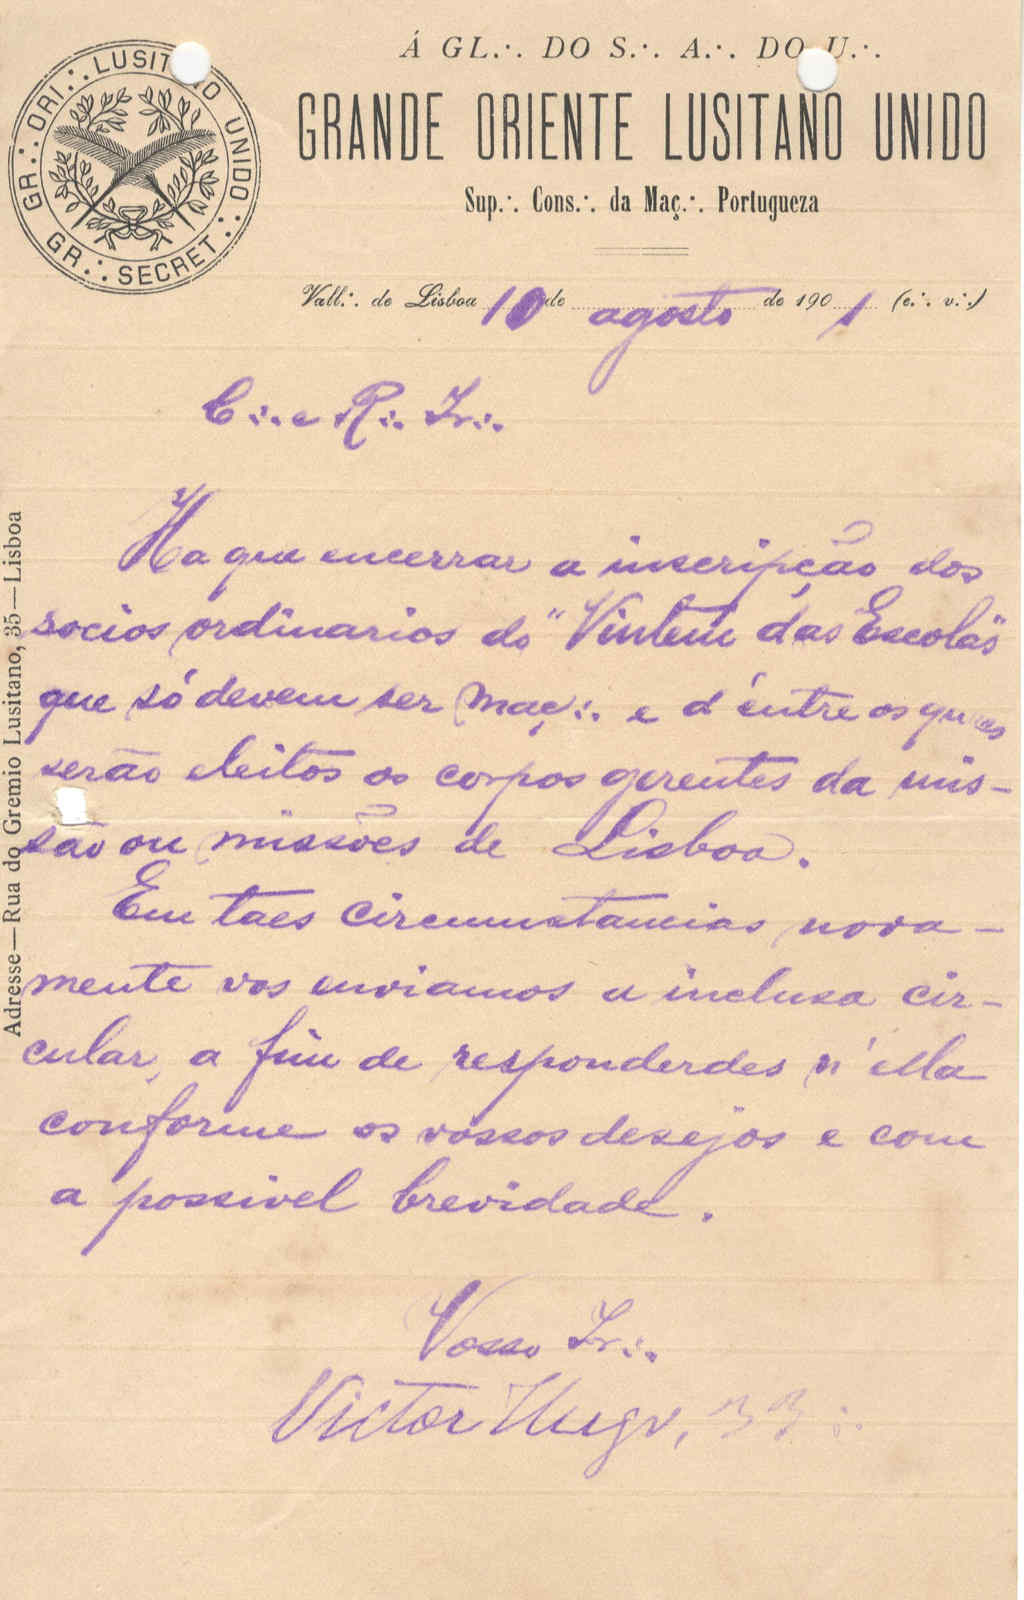 Á GL.·. DO S.·. A.·. DO U.·.
GRANDE ORIENTE LUSITANO UNIDO
Sup.·. Cons.·. da Maç.·. Portugueza
GR.·. ORI.·. LUSITANO UNIDO.·.
GR.·. SECRET.·.
Vall.·. de Lisboa 10 de agosto de 1901 (e.·. v.·.)
C.·. e R.·. Ir.·.
Ha que encerrar a inscripção dos
socios ordinarios do "Vintem das Escolas"
que só devem ser Maç.·. e d'entre os quaes
serão eleitos os corpos gerentes da mis-
são ou missões de Lisboa.
Em taes circumstancias nova-
mente vos enviamos a inclusa cir-
cular, a fim de responderdes n'ella
conforme os vossos desejos e com
a possivel brevidade.
Vosso Ir.·.
Victor Hugo, 33.·.
Adresse—Rua do Gremio Lusitano, 35—Lisboa